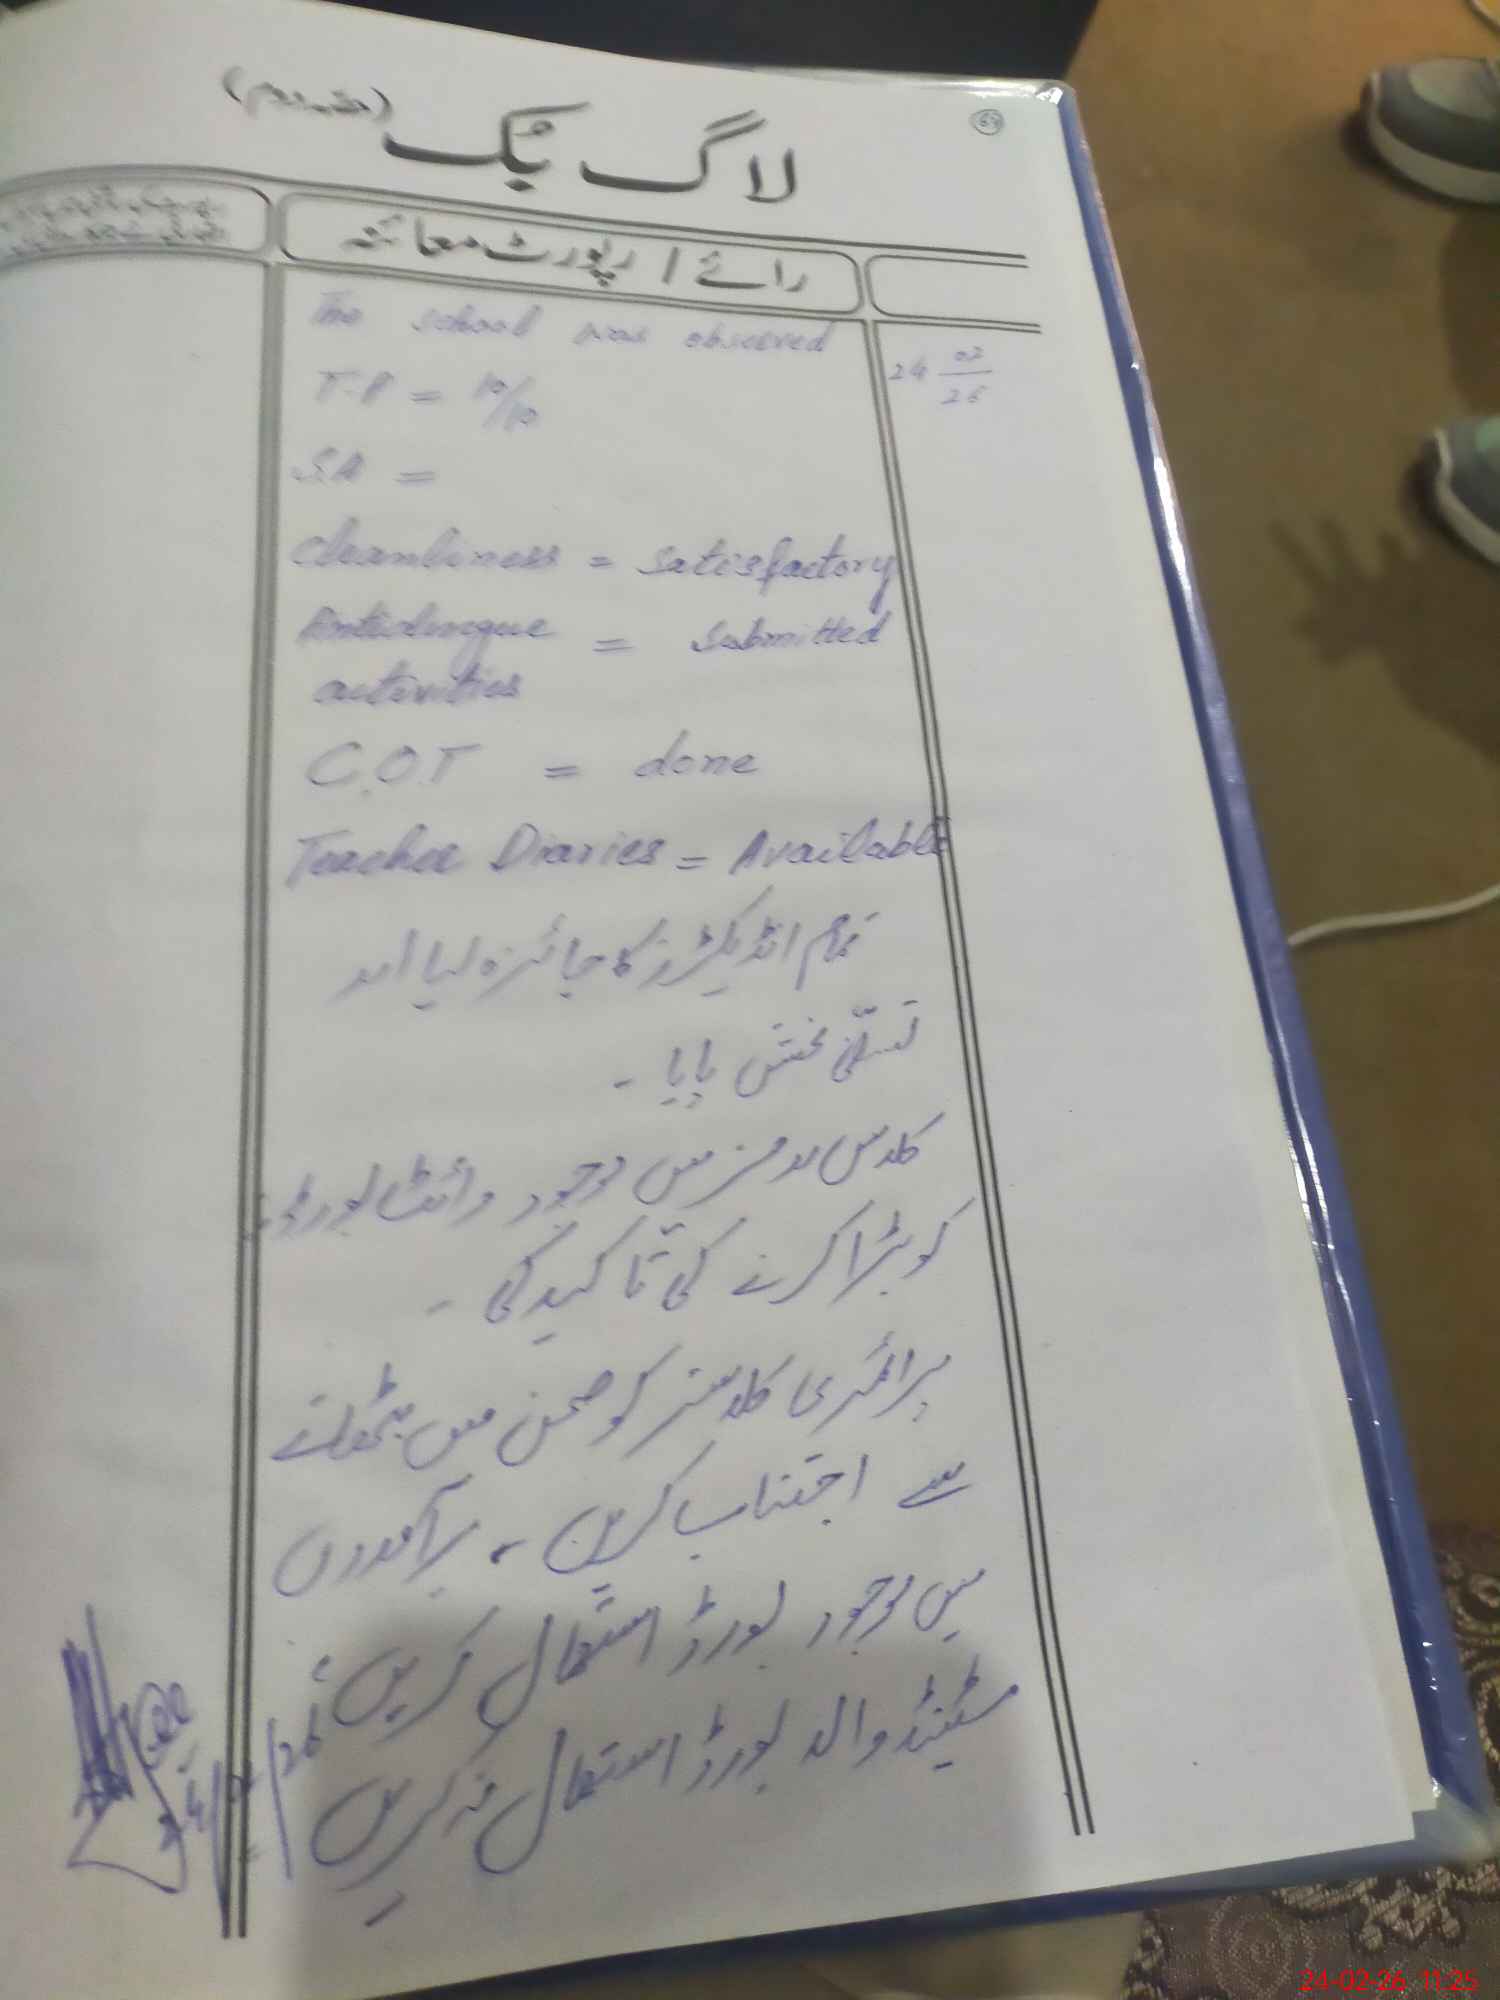 64
لاگ بک (حصہ دوم)
رائے / رپورٹ معائنہ
The school was observed
24 02/26
T.P = 10/10
S.A =
Cleanliness = satisfactory
Antidengue = submitted
activities
C.O.T = done
Teacher Diaries = Available
تمام انڈیکیٹرز کا جائزہ لیا اور
تسلی بخش پایا ۔
کلاس رومز میں موجود وائٹ بورڈز
کو بڑا کرنے کی تاکید کی ۔
پرائمری کلاسز کو صحن میں بٹھانے
سے اجتناب کریں ، برآمدوں
میں موجود بورڈ استعمال کریں ،
سٹینڈ والا بورڈ استعمال نہ کریں ۔
24/02/26
24-02-26 11:25